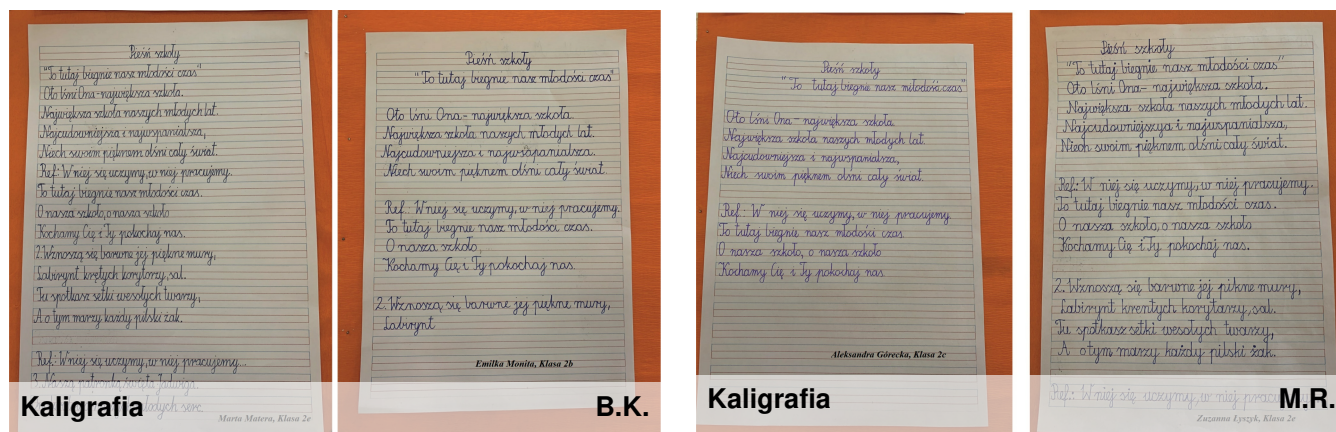 Pieśń szkoły
"To tutaj biegnie nasz młodości czas"
Oto lśni Ona - największa szkoła.
Największa szkoła naszych młodych lat.
Najcudowniejsza i najwspanialsza,
Niech swoim pięknem olśni cały świat.
Ref.: W niej się uczymy, w niej pracujemy.
To tutaj biegnie nasz młodości czas.
O nasza szkoło, o nasza szkoło
Kochamy Cię i Ty pokochaj nas.
2. Wznoszą się barwne jej piękne mury,
Labirynt krętych korytarzy, sal.
Tu spotkasz setki wesołych twarzy,
A o tym marzy każdy pilski żak.
Ref.: W niej się uczymy, w niej pracujemy...
3. Naszą patronką święta Jadwiga.
młodych serc
Marta Matera, Klasa 2e
Kaligrafia
Pieśń szkoły
"To tutaj biegnie nasz młodości czas"
Oto lśni Ona - największa szkoła.
Największa szkoła naszych młodych lat.
Najcudowniejsza i najwsapanialsza.
Niech swoim pięknem olśni cały świat.
Ref.: W niej się uczymy, w niej pracujemy.
To tutaj biegnie nasz młodości czas.
O nasza szkoło,
Kochamy Cię i Ty pokochaj nas.
2. Wznoszą się barwne jej piękne mury,
Labirynt
Emilka Monita, Klasa 2b
B.K.
Pieśń szkoły
"To tutaj biegnie nasz młodości czas"
Oto lśni Ona - największa szkoła.
Największa szkoła naszych młodych lat.
Najcudowniejsza i najwspanialsza,
Niech swoim pięknem olśni cały świat.
Ref.: W niej się uczymy, w niej pracujemy.
To tutaj biegnie nasz młodości czas.
O nasza szkoło, o nasza szkoło
Kochamy Cię i Ty pokochaj nas.
Aleksandra Górecka, Klasa 2c
Kaligrafia
Pieśń szkoły
"To tuttaj biegnie nasz młodości czas"
Oto lśni Ona - największa szkoła.
Największa szkoła naszych młodych lat.
Najcudowniejszya i najwspanialsza,
Niech swoim pięknem olśni cały świat.
Ref.: W niej się uczymy, w niej pracujemy.
To tutaj biegnie nasz młodości czas.
O nasza szkoło, o nasza szkoło
Kochamy Cię i Ty pokochaj nas.
2. Wznoszą się barwne jej pikne mury,
Labirynt krentych korytarzy, sal.
Tu spotkasz setki wesołych twarzy,
A o tym marzy każdy pilski żak.
Ref.: W niej się uczymy, w niej
Zuzanna Łyszyk, Klasa 2e
M.R.